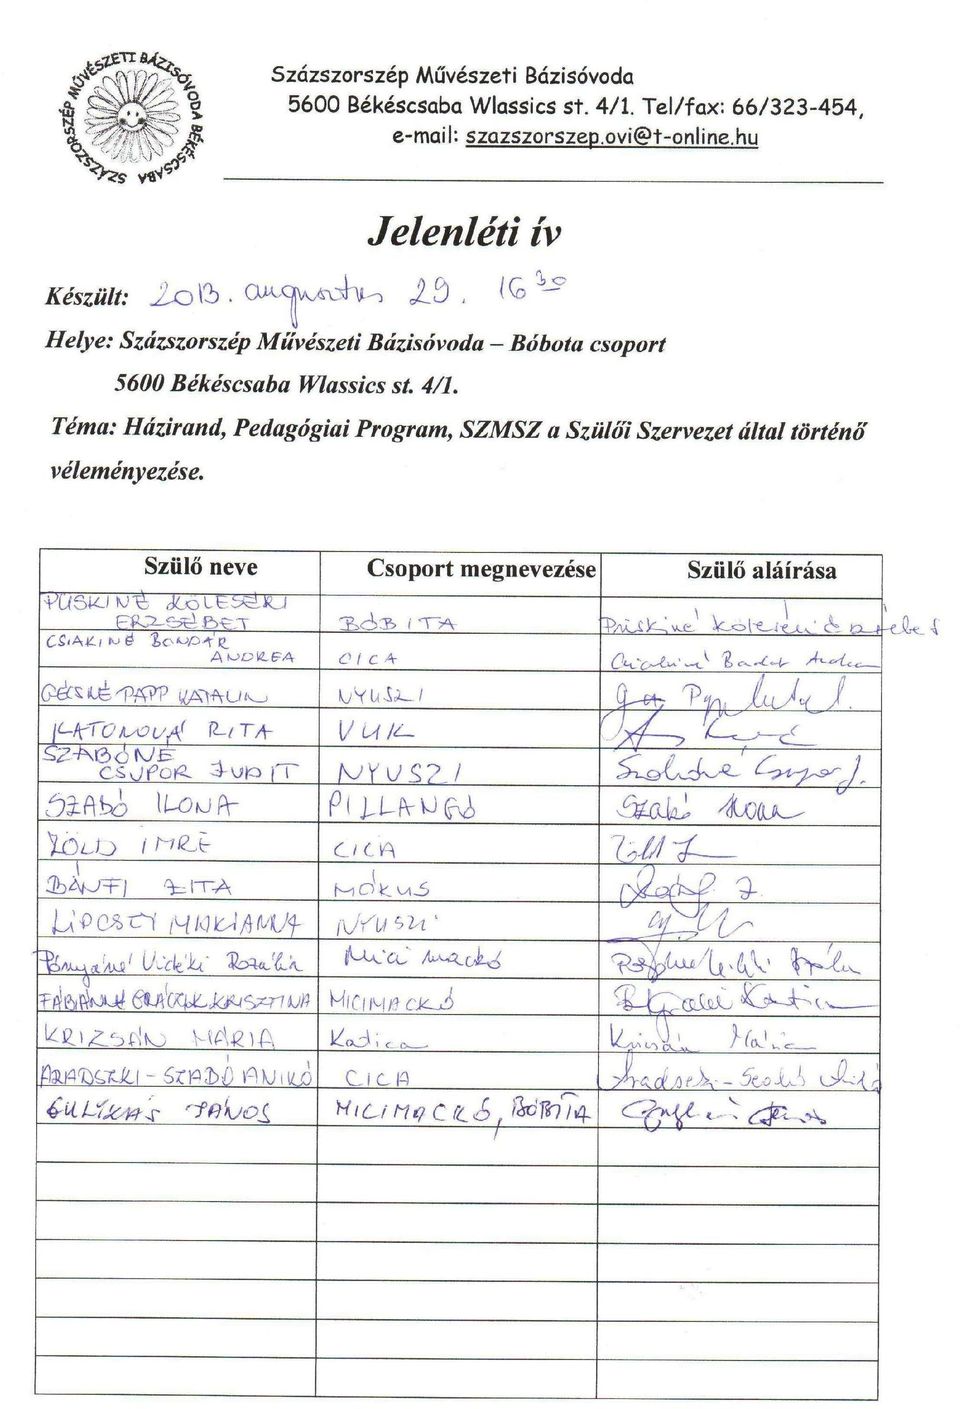 SZÁZSZORSZÉP MŰVÉSZETI BÁZISÓVODA BÉKÉSCSABA
Százszorszép Művészeti Bázisóvoda
5600 Békéscsaba Wlassics st. 4/1. Tel/fax: 66/323-454,
e-mail: szazszorszep.ovi@t-online.hu
Jelenléti ív
Készült: 2013. augusztus 29. 16 30
Helye: Százszorszép Művészeti Bázisóvoda – Bóbota csoport
5600 Békéscsaba Wlassics st. 4/1.
Téma: Házirand, Pedagógiai Program, SZMSZ a Szülői Szervezet által történő
véleményezése.
Szülő neve Csoport megnevezése Szülő aláírása
PÜSKINÉ KÖLESÉRI
ERZSÉBET BÓBITA Püskiné Köleséri Erzsébet
CSIAKINÉ BONDÁR
ANDREA CICA Csiakiné Bondár Andrea
GÉCSNÉ PAPP KATALIN NYUSZI
KATONOVÁ RITA VUK
SZABÓNÉ
CSUPOR JUDIT NYUSZI Szabóné Csupor J.
SZABÓ ILONA PILLANGÓ Szabó Ilona
ZÖLD IMRE CICA Zöld I
BÁNFI ZITA MÓKUS
LIPCSEY MINKIANNA NYUSZI
Vidéki Rozália Mici mackó
FÁBIÁNNÉ KRISZTINA MICIMACKÓ
KRIZSÁN MÁRIA Katica Krizsán Mária
ARADSZKI - SZABÓ ANIKÓ CICA Aradszki - Szabó Anikó
GULYÁS JÁNOS MICIMACKÓ, BÓBITA